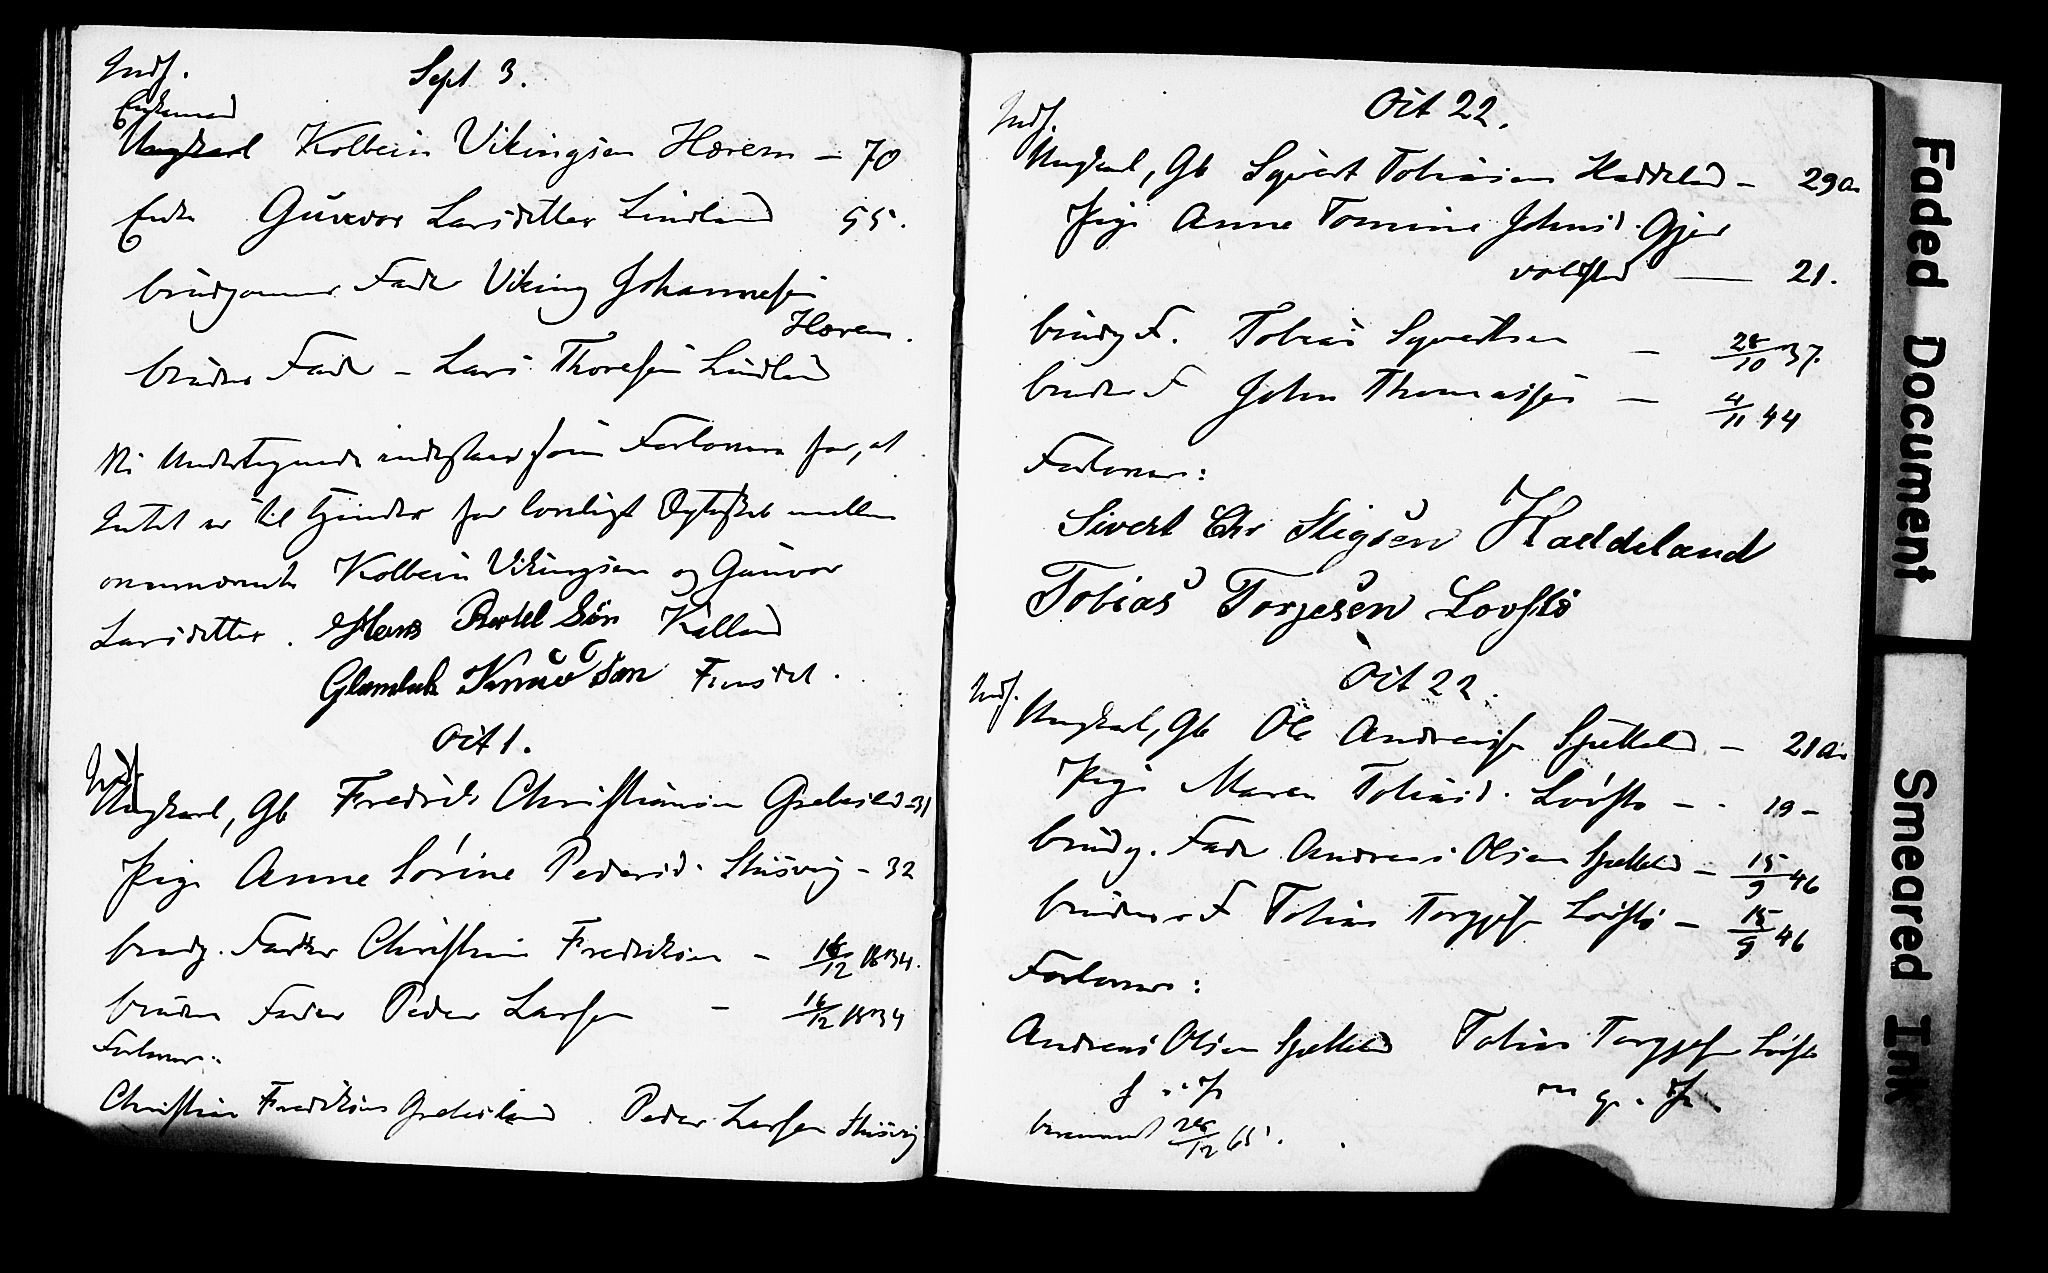 Indf.
Sept 3.
Enkemand
Ungkarl Kolbein Vikingsen Hærem – 70
Enke Gunvor Larsdatter Lindland 55.
brudgommens Fader Viking Johannesen
Hærem.
brudens Fader – Lars Thoresen Lindland
Vi Undertegnede indestaar som Forlovere for, at
Intet er til Hinder for lovligt Ægteskab mellem
ovennævnte Kolbein Vikingsen og Gunvor
Larsdatter. Hans Bertel Søn Kalland
Knud Søn
Oct 1.
Indf.
Ungkarl, Gb Fredrik Christiansen Grebesland – 31
Pige Anne Sørine Pedersd. Stusvig – 32
brudg. Fader Christian Fredriksen – 16/12 1834.
brudens Fader Peder Larsen – 16/12 1834
Forlovere:
Christian Fredriksen Grebesland. Peder Larsen Stusvig
Indf.
Oct 22.
Ungkarl, Gb Syvert Tobiasen Haddeland – 29 a.
Pige Anne Tomine Johnsd. Gjer
voldstad — 21.
brudg F. Tobias Syvertsen – 28/10 37.
brudens F John Thomassen – 4/11 44
Forlovere:
Sivert Chr Stigsen Haddeland
Tobias Torjesen Lovstø
Oct 22.
Indf.
Ungkarl, Gb Ole Andreasen Spetteland – 21 a.
Pige Maren Tobiasd. Lovstø – 19 –
brudg. Fader Andreas Olsen Spetteland – 15/9 46
brudens F Tobias Torgjesen Lovstø – 15/9 46
Forlovere:
Andreas Olsen Spetteland Tobias Torgjesen Lovstø
m. p. P.
28/12 65.
Faded Document
Smeared Ink